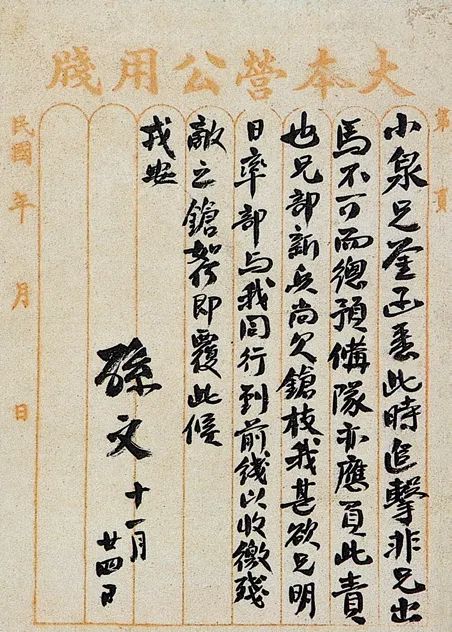 大本營公用牋
第 頁
小泉兄鑒函悉此時追擊非兄出
馬不可而總預備隊亦應負此責
也兄部新兵尚欠鎗枝我甚欲兄明
日率部与我同行到前线以收繳殘
敵之鎗如何即覆此候
戎安
孫文十一月
廿四日
民國 年 月 日